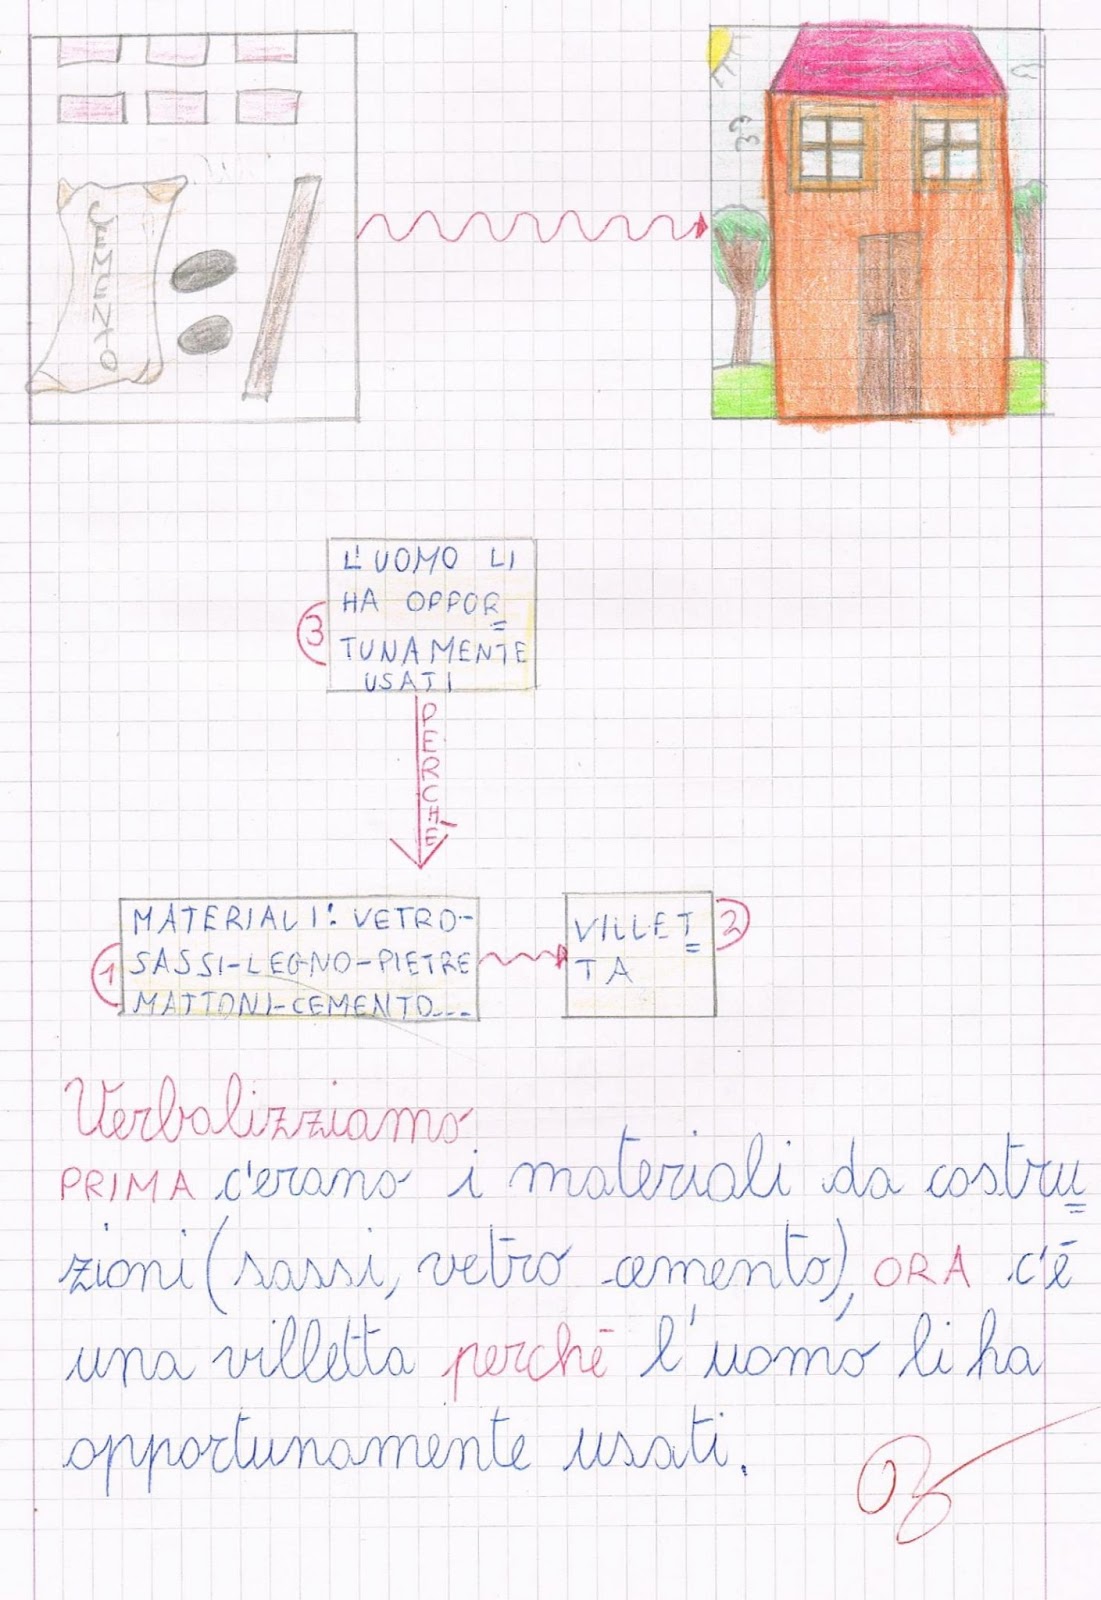 CEMENTO
L'UOMO LI
HA OPPOR
TUNAMENTE
USATI
3
PERCHÉ
MATERIALI: VETRO-
SASSI-LEGNO-PIETRE
MATTONI-CEMENTO...
1
VILLET
TA
2
Verbalizziamo
PRIMA c'erano i materiali da costru
zioni (sassi, vetro cemento), ORA c'é
una villetta perché l'uomo li ha
opportunamente usati.